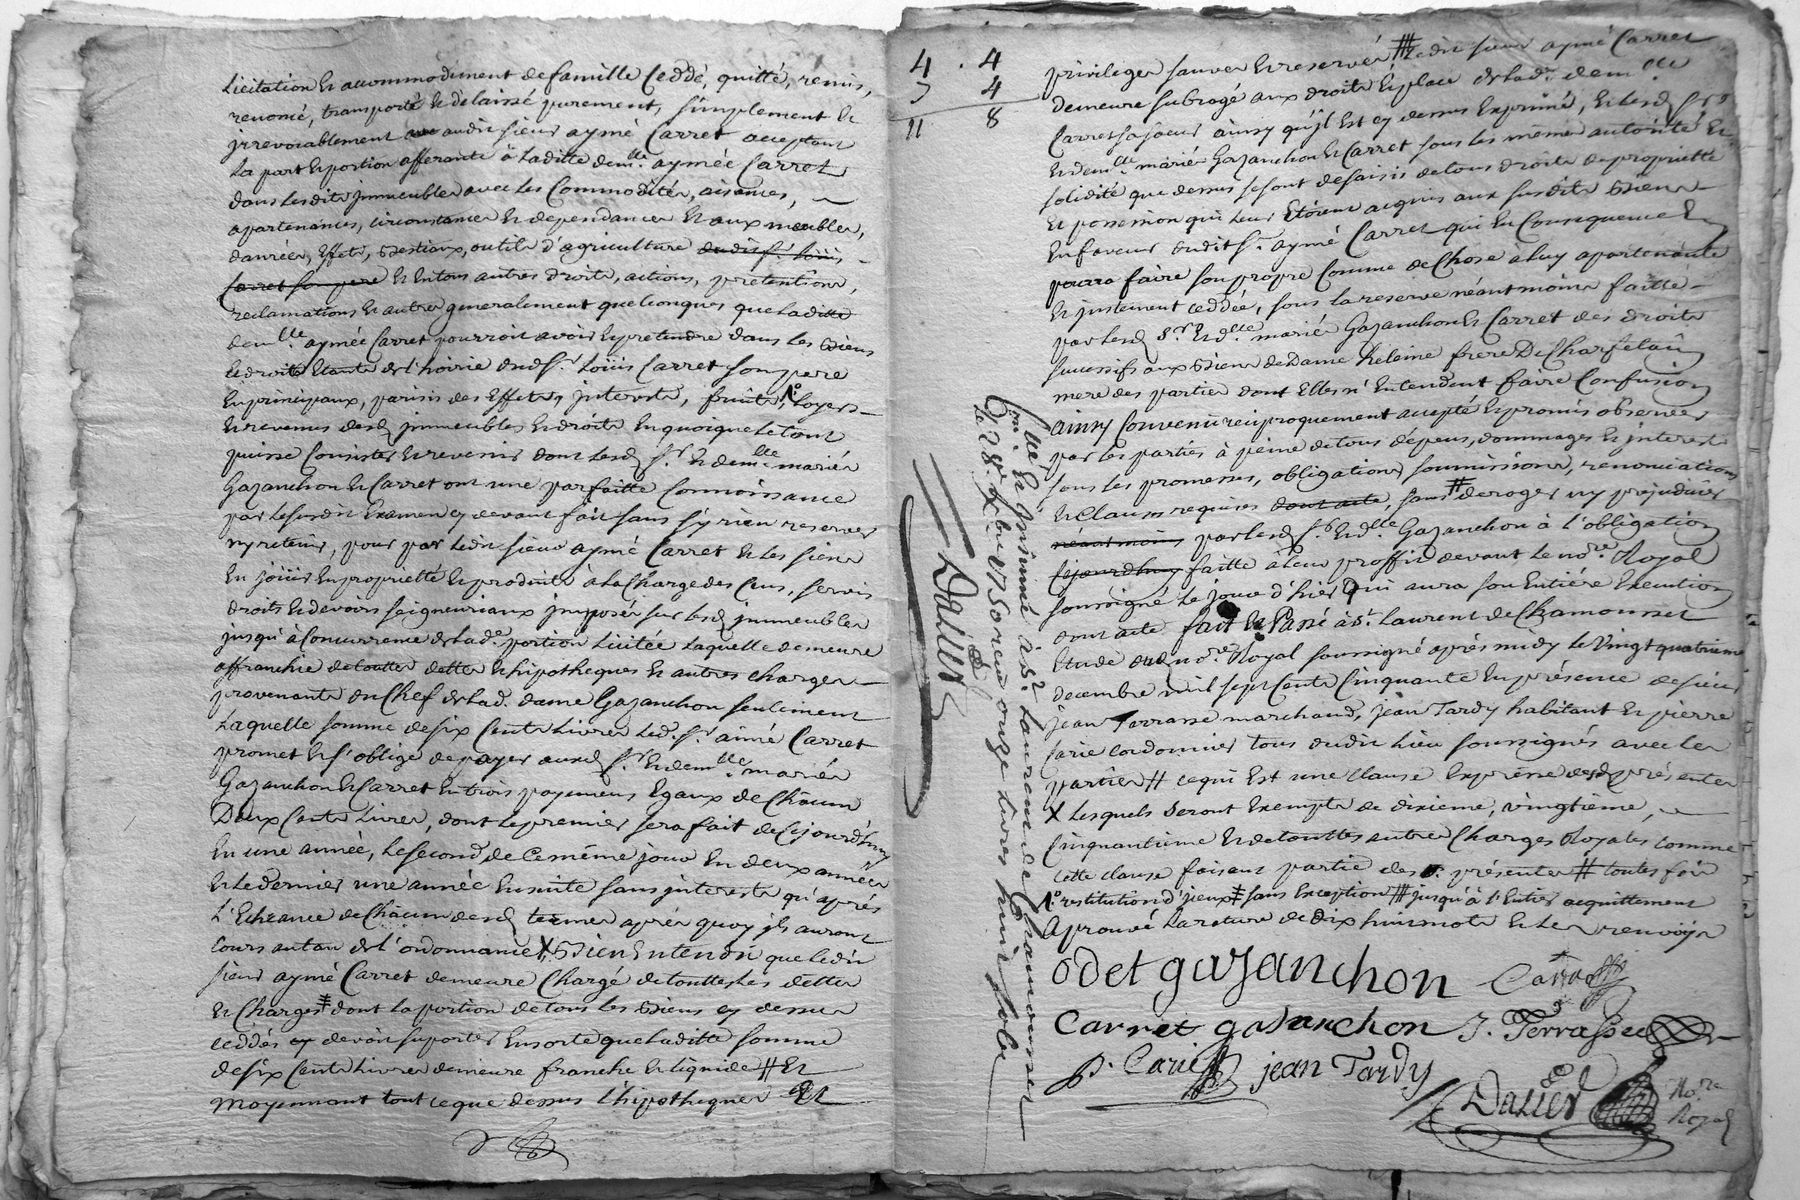 Licitation et accommodement de famille Ceddé, quitté, remis,
renoncé, transporté et delaissé purement, simplement et
jrrevocablement audit sieur aymé Carret acceptant
La part et portion afferante à Laditte demlle. aymée Carret
dans lesdits jmmeubles avec les Commodités, aisances,
apartenances, circonstances et dependances et aux meubles,
danrées, effets, bestiaux, outils d'agriculture dudit sr. Loüis
Carret son pere et en tous autres droits, actions, pretentions,
reclamations et autres generalement quelconques que laditte
demlle aymée Carret pourroit avoir et pretendre dans les biens
et droits étants de l'hoirie dud. sr. Loüis Carret son pere
en principaux, parisis des effets, jnterests, fruits, 1º Loyers
et revenus desd. jmmeubles et droits en quoique le tout
puisse Consister et revenir dont lesd. sr. et demlle. mariés
Gazanchon et Carret ont une parfaitte Connoissance
par le susdit Examen cy devant fait sans s'y rien reserver
ny retenir, pour par ledit sieur aymé Carret et les siens
en joüir en proprietté et produits à la Charge des Cens, servis
droits et devoirs seigneuriaux jmposés sur lesd. jmmeubles
jusqu'à Concurrence de lade. portion licitée Laquelle demeure
affranchie de touttes dettes et hipotheques et autres charges
provenants du Chef de lad. dame Gazanchon seulement
Laquelle somme de six Cents Livres led. sr. aimé Carret
promet et s'oblige de payer auxd. sr. et demlle. mariés
Gazanchon et Carret en trois payemens Egaux de Châcun
Deux Cents Livres, dont le premier sera fait de Cejourd'huy
en une année, le second de Ce même jour en deux années
et le dernier une année ensuite sans jnterests qu'après
L'Echeance de Châcun desd. termes après quoy jls auront
Cours au tau de l'ordonnance X Bien Entendu que ledit
sieur aymé Carret demeure Chargé de touttes les dettes
et Charges ‡ dont la portion de tous les biens cy dessus
ceddés devoit suporter Ensorte que laditte somme
de six Cents Livres demeure franche et liquide # et
moyennant tout ce que dessus l'hipotheques et
4 . 4
7 4
11 8
privileges sauves et reservés #| ledit sieur aymé Carret
demeure subrogé aux droits et place de lade. demlle
Carret sa soeur ainsy qu'jl Est cy dessus Exprimé, et lesd. srs
et demlle. mariés Gazanchon et Carret sous les mêmes autorité et
solidité que dessus se sont desaisis de tous droits de proprietté
et possession qui leur Etoient acquis aux susdits Biens
en faveur dudit sr. aymé Carret qui en Consequence en
pourra faire son propre Comme de Chose à luy apartenante
et justement ceddée, sous la reserve néantmoins faitte
par lesd. sr. et dlle. mariés Gazanchon et Carret des droits
successifs aux Biens de Dame heleine frere De Charfetain
mere des parties dont Elles n'Entendent faire Confusion
ainsy Convenu reciproquement accepté et promis observer
par les parties à peine de tous dépens, dommages et jnterests
sous les promesses, obligations, soumissions, renonciations
et Clauses requises dont acte, sans # deroger ny prejudicier
néantmoins par lesd. sr. et dlle. Gazanchon à l'obligation
cejourdhuy faitte à leur proffit devant le nore. Royal
soussigné le jour d'hier qui aura son Entiére Execution
dont acte fait et Passé à st. Laurent de Chamousset
Etude dud. nore. Royal soussigné après midy le Vingt quatrieme
decembre mil sept Cents Cinquante en présence de sieur
jean Terrasse marchand, jean Tardy habitant et pierre
Carie cordonnier tous dudit lieu soussignés avec les
parties # ce qui Est une Clause Expresse desd. présentes
X lesquels seront Exempts de dixieme, vingtiéme,
Cinquantieme et de touttes autres Charges Royales comme
cette clause faisant partie des présentes # toutes fois
1º restitution d'jceux ‡ sans Exception #| jusqu'à l'Entier acquittement
Aprouvé la rature de dix huit mots et les renvoys
odet gazanchon Carret
Carret gasanchon J. Terrasse
P. Carie jean Tardy
Dalier Nore. Royal
Cnlle. Et jnsinué à St. Laurent de Chamousset
le 28e. Xbre 1750 reçu onze livres huit sols
Dalier